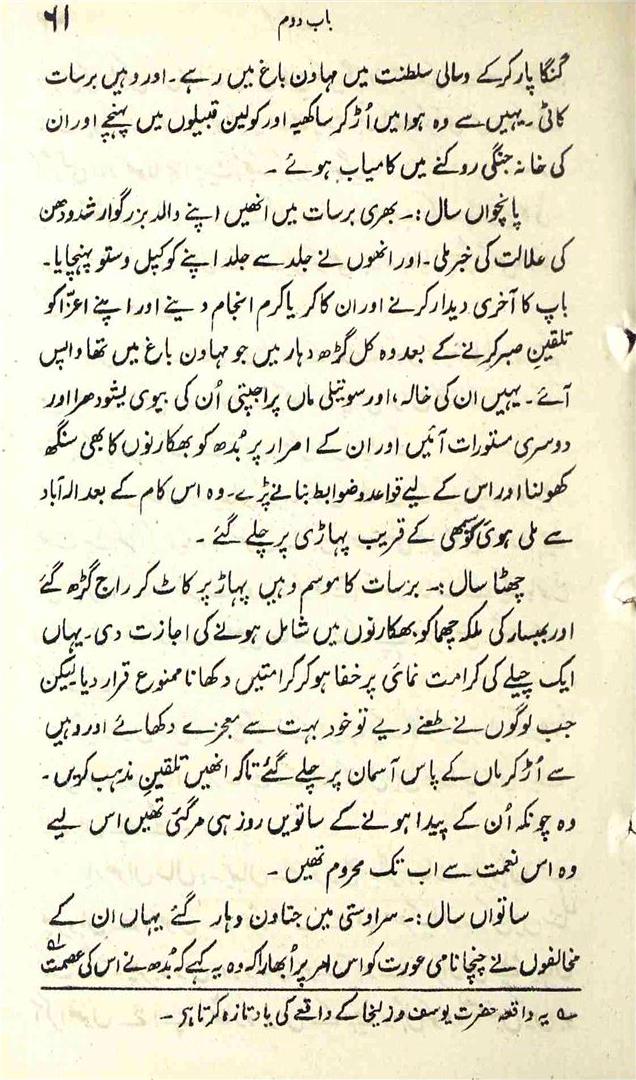 باب دوم
۶۱
گنگا پار کرکے وسالی سلطنت میں مہاون باغ میں رہے۔ اور وہیں برسات
کاٹی۔ یہیں سے وہ ہوا میں اُڑ کر ساکھیہ اور کولین قبیلوں میں پہنچے اور ان
کی خانہ جنگی روکنے میں کامیاب ہوئے۔
پانچواں سال:۔ بھری برسات میں انھیں اپنے والد بزرگوار شدودھن
کی علالت کی خبر ملی۔ اور انھوں نے جلد سے جلد اپنے کو کپل وستو پہنچایا۔
باپ کا آخری دیدار کرنے اور ان کا کریا کرم انجام دینے اور اپنے اعزّا کو
تلقینِ صبر کرنے کے بعد وہ کل گڑھ دہار میں جو مہاون باغ میں تھا واپس
آئے۔ یہیں ان کی خالہ، اور سوتیلی ماں پراجپتی اُن کی بیوی یشودھرا اور
دوسری مستورات آئیں اور ان کے اصرار پر بُدھ کو بھکارنوں کا بھی سنگھ
کھولنا اور اس کے لیے قواعد و ضوابط بنانے پڑے۔ وہ اس کام کے بعد الہ آباد
سے ملی ہوئی کوسمبھی کے قریب پہاڑی پر چلے گئے۔
چھٹا سال:۔ برسات کا موسم وہیں پہاڑ پر کاٹ کر راج گڑھ گئے
اور بمبسار کی ملکہ چھما کو بھکارنوں میں شامل ہونے کی اجازت دی۔ یہاں
ایک چیلے کی کرامت نمائی پر خفا ہو کر کرامتیں دکھانا ممنوع قرار دیا لیکن
جب لوگوں نے طعنے دیے تو خود بہت سے معجزے دکھائے اور وہیں
سے اُڑ کر ماں کے پاس آسمان پر چلے گئے تاکہ انھیں تلقینِ مذہب کریں۔
وہ چونکہ اُن کے پیدا ہونے کے ساتویں روز ہی مر گئی تھیں اس لیے
وہ اس نعمت سے اب تک محروم تھیں۔
ساتواں سال:۔ سراوستی میں جتاون دہار گئے یہاں ان کے
مخالفوں نے چنچا نامی عورت کو اس امر پر اُبھارا کہ وہ یہ کہے کہ بُدھ نے اس کی عصمت
یہ واقعہ حضرت یوسف و زلیخا کے واقعے کی یاد تازہ کرتا ہے۔